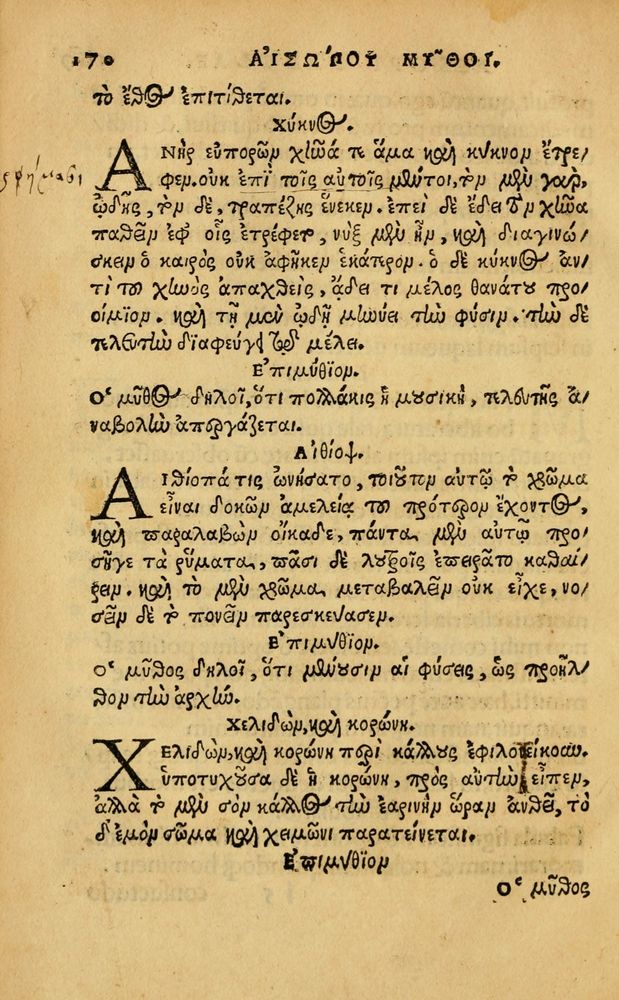 170 ΑΙΣΩΠΟΥ ΜΥΘΟΙ.
τὸ ἔθος ἐπιτίθεται.
Χύκνος.
ΑΝῊρ εὐπορῶν χῆνά τε ἅμα καὶ κύκνον ἔτρε/
φεν. οὐκ ἐπὶ τοῖς αὐτοῖς μέντοι, τὸν μὲν γὰρ,
ᾠδῆς, τὸν δὲ, τραπέζης ἕνεκεν. ἐπεὶ δὲ ἔδει τὸν χῆνα
παθεῖν ἐφ' οἷς ἐτρέφετο, νὺξ μὲν ἦν, καὶ διαγινώ/
σκειν ὁ καιρὸς οὐκ ἀφῆκεν ἑκάτερον. ὁ δὲ κύκνος ἀν/
τὶ τοῦ χηνὸς ἀπαχθεὶς, ᾄδει τι μέλος θανάτου προ/
οίμιον. καὶ τῇ μὲν ᾠδῇ μηνύει τὴν φύσιν. τὴν δὲ
τελευτὴν διαφεύγει τῷ μέλει.
Ἐπιμύθιον.
Ὁ μῦθος δηλοῖ, ὅτι πολλάκις ἡ μουσικὴ, τελευτῆς ἀ/
ναβολὴν ἀπεργάζεται.
Αἰθίοψ.
ΑΙθίοπά τις ὠνήσατο, τοιοῦτον αὐτῷ τὸ χρῶμα
εἶναι δοκῶν ἀμελείᾳ τοῦ πρότερον ἔχοντος,
καὶ παραλαβὼν οἴκαδε, πάντα μὲν αὐτῷ προ/
σῆγε τὰ ῥύματα, πᾶσι δὲ λουτροῖς ἐπειρᾶτο καθαί/
ρειν. καὶ τὸ μὲν χρῶμα μεταβαλεῖν οὐκ εἶχε, νο/
σεῖν δὲ τὸ πονεῖν παρεσκεύασεν.
Ἐπιμύθιον.
Ὁ μῦθος δηλοῖ, ὅτι μένουσιν αἱ φύσεις, ὡς προῆλ/
θον τὴν ἀρχήν.
Χελιδὼν, καὶ κορώνη.
ΧΕλιδὼν, καὶ κορώνη περὶ κάλλους ἐφιλονείκουν.
ὑποτυχοῦσα δὲ ἡ κορώνη, πρὸς αὐτὴν εἶπεν,
ἀλλὰ τὸ μὲν σὸν κάλλος τὴν ἐαρινὴν ὥραν ἀνθεῖ, τὸ
δ' ἐμὸν σῶμα καὶ χειμῶνι παρατείνεται.
Ἐπιμύθιον
Ὁ μῦθος